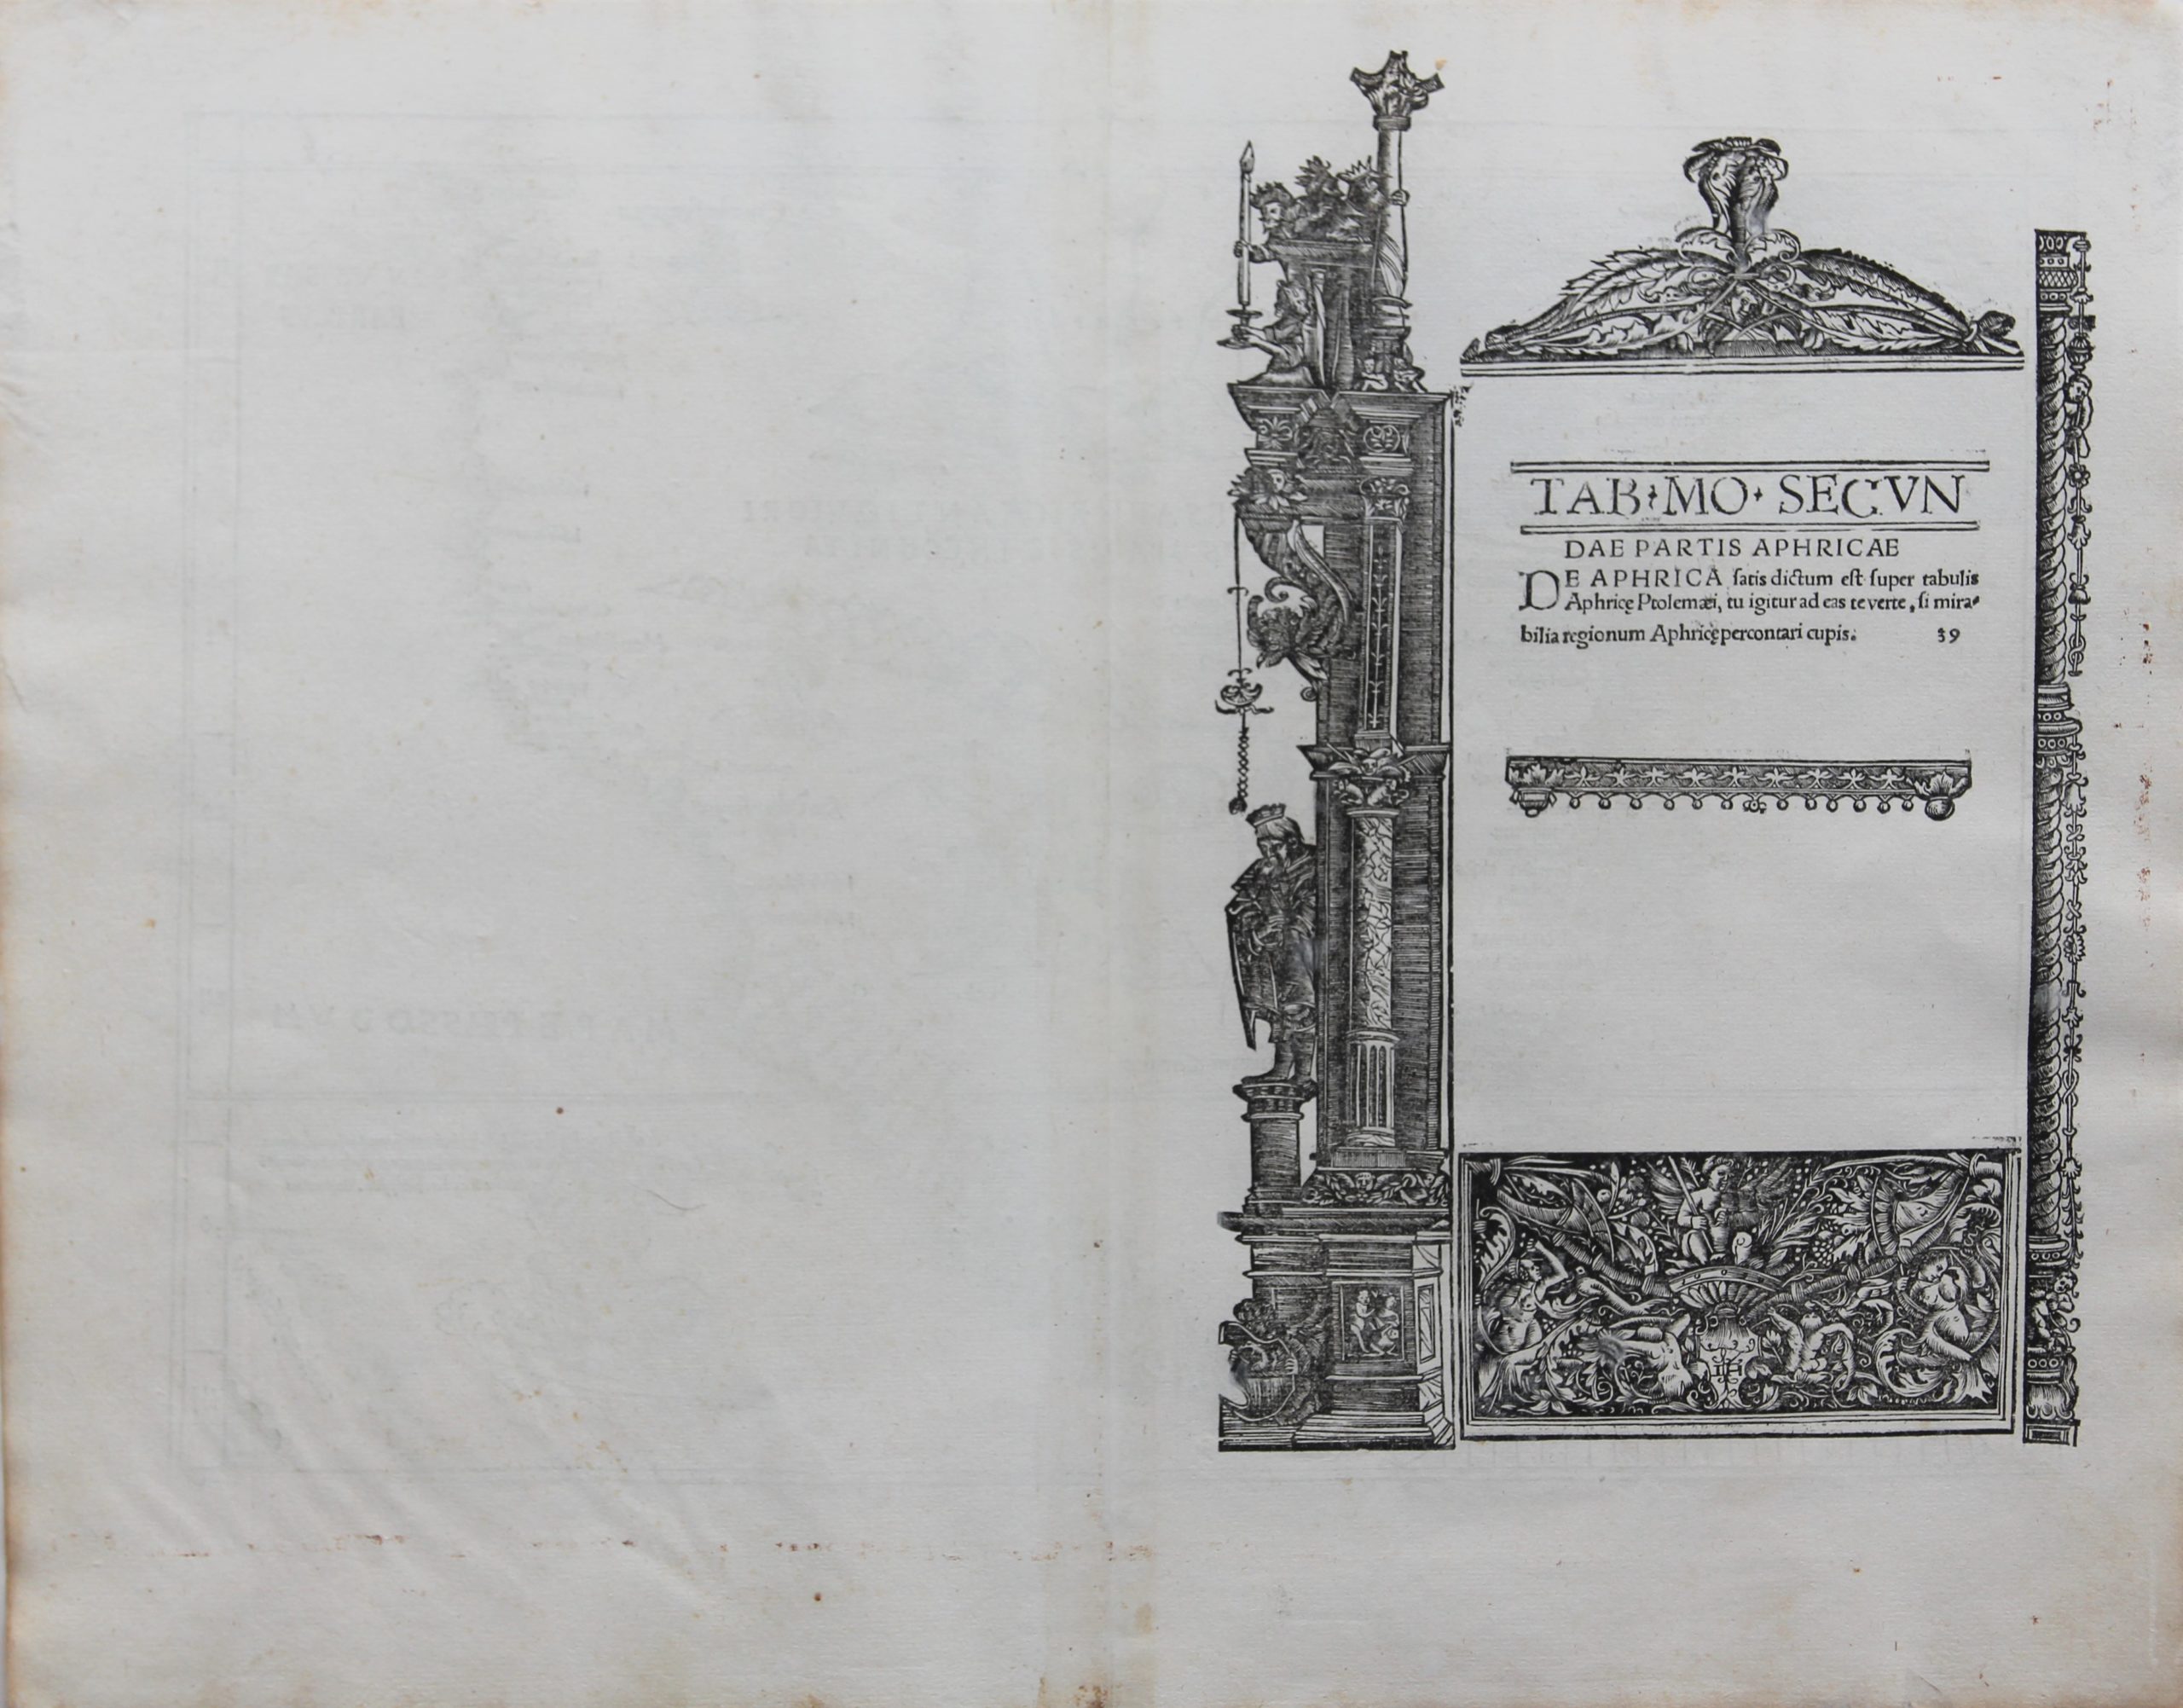 TAB⁘MO⁘ SECVN
DAE PARTIS APHRICAE
DE APHRICA ſatis dictum eſt ſuper tabulis
Aphricę Ptolemæi, tu igitur ad eas te verte, ſi mira-
bilia regionum Aphricę percontari cupis. 39
IH